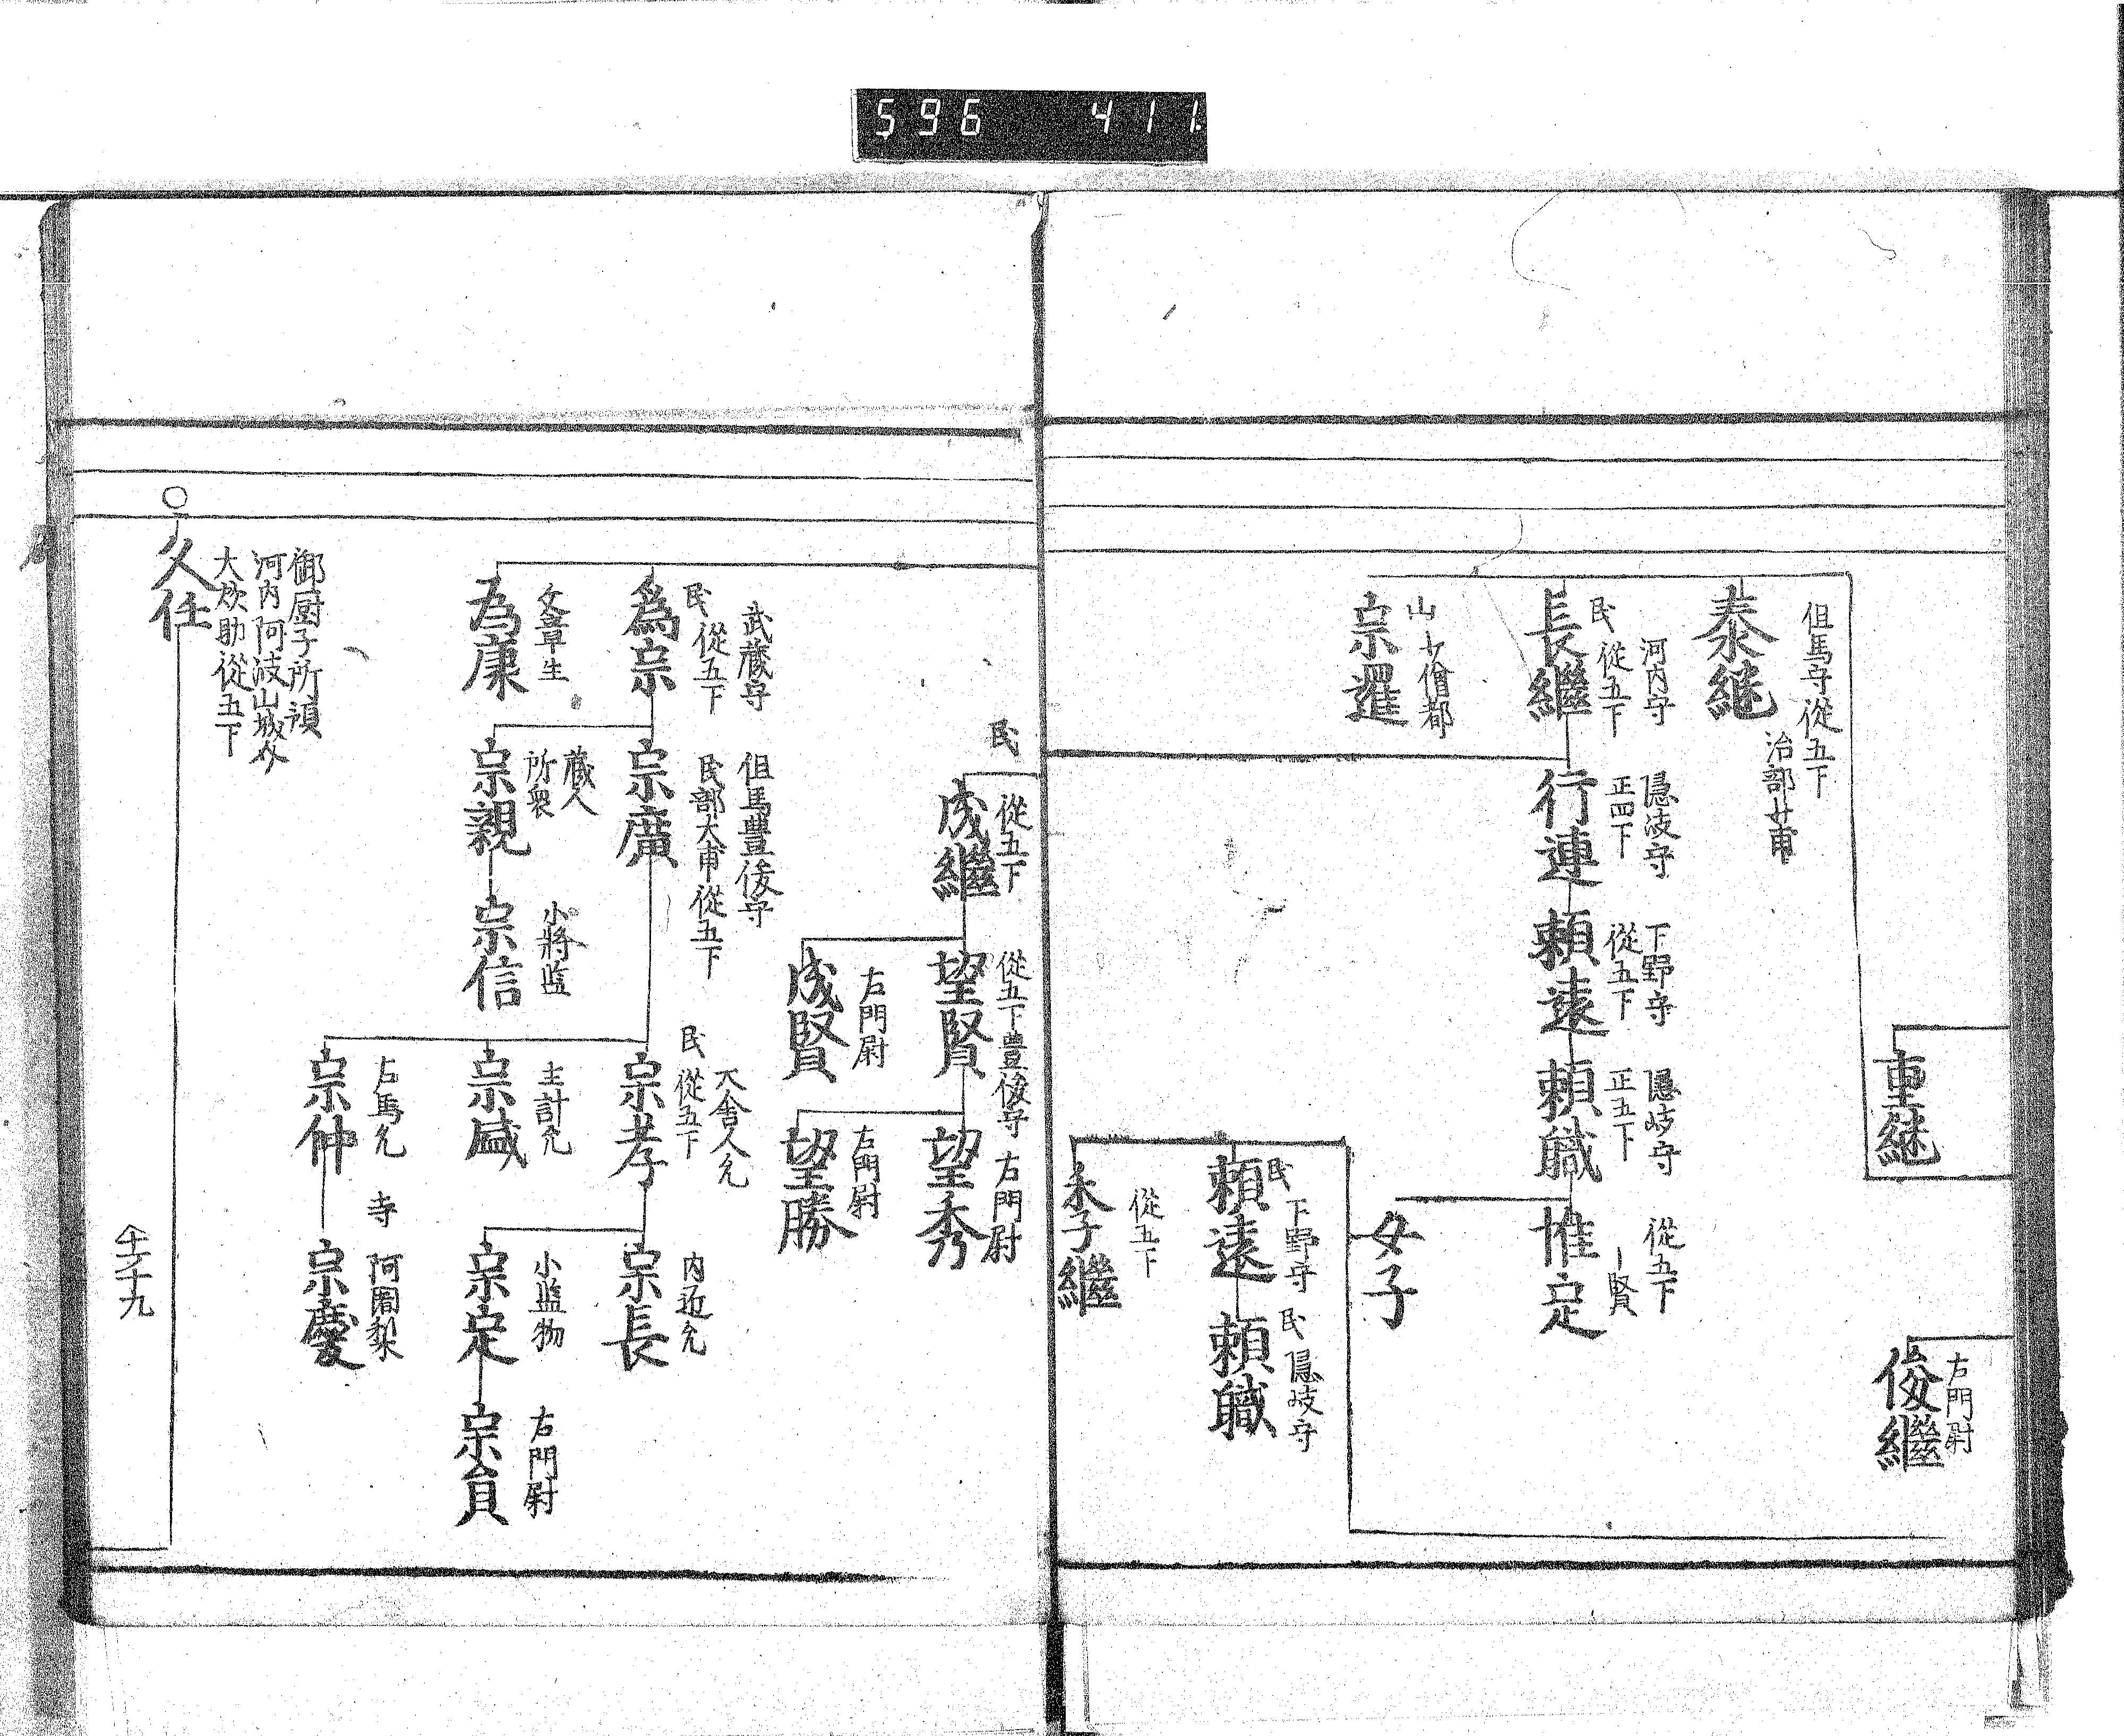 596 411
重継
俊繼
右門尉
但馬守從五下
治部少甫
泰継
河内守
民 從五下
長繼
山 少僧都
宗暹
隠岐守
正四下
行連
下野守
從五下
頼遠
隠岐守
正五下
頼職
從五下
一賢
惟定
女子
民 下野守
頼遠
民 隠岐守
頼職
從五下
永子繼
民
從五下
成繼
從五下豊後守
望賢
右門尉
成賢
右門尉
望秀
右門尉
望勝
武蔵守
民 從五下
為宗
文章生
為康
但馬豊後守
民部大甫從五下
宗廣
蔵人
所衆
宗親
小將監
宗信
大舎人允
民 從五下
宗孝
主計允
宗盛
右馬允
宗仲
内匠允
宗長
小監物
宗定
右門尉
宗員
寺 阿闍梨
宗慶
御厨子所預
河内阿波山城介
大炊助從五下
久任